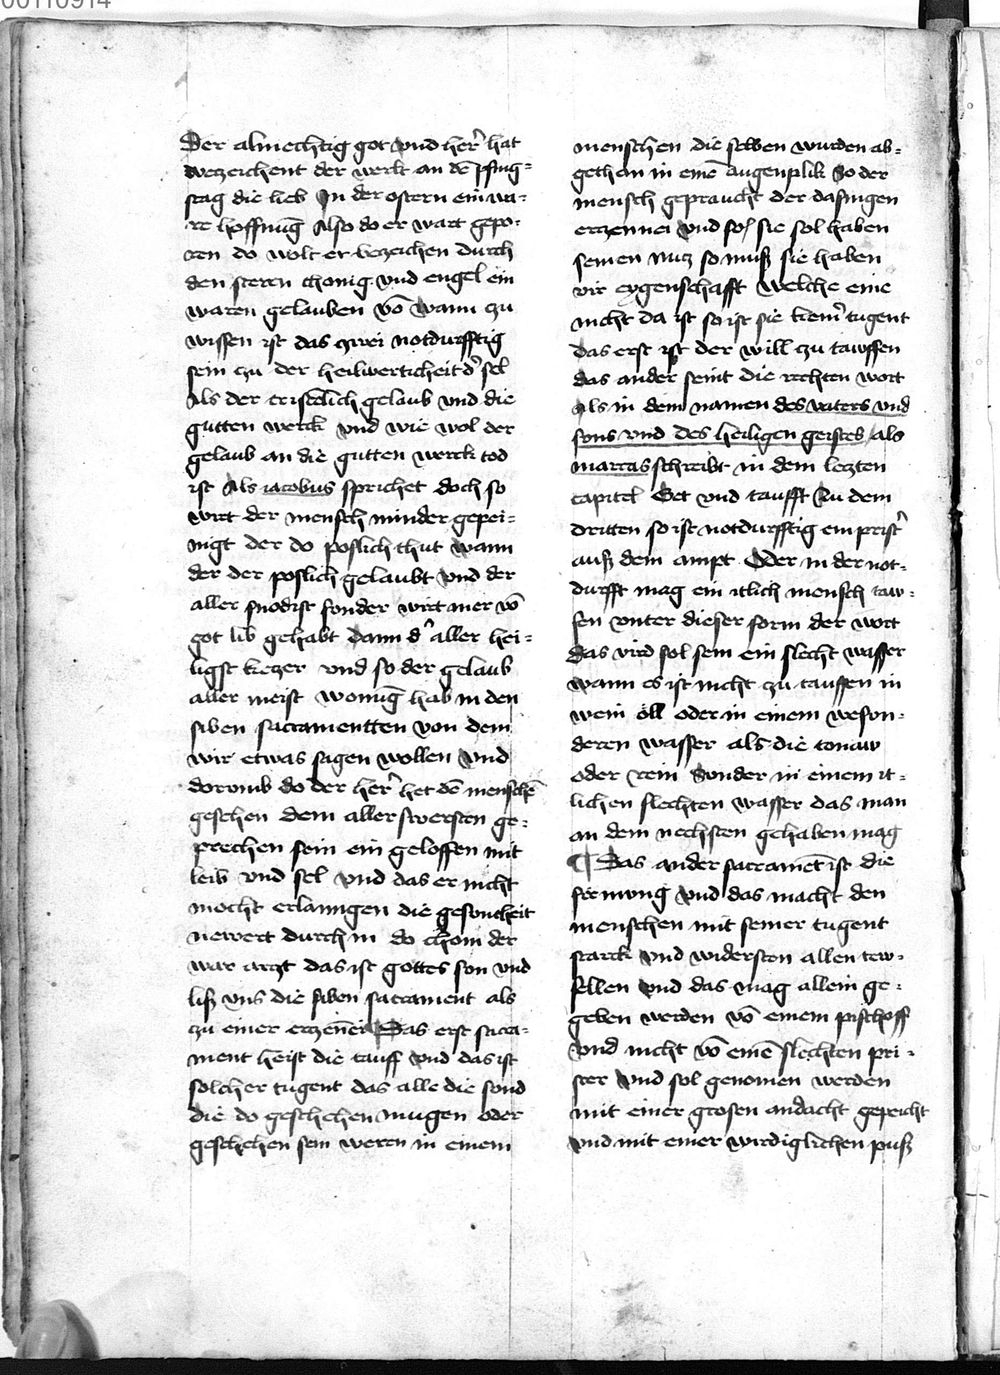 00110914
Der almechtig got vnd her̃ hat
bezeichent der werlt an dē pfing-
stag die lieb In der ostern ein wa-
re hoffnūg Also do er wart gepo-
ren do wolt er bezeichen durch
den steren chonig vnd engel ein
waren gelauben vō wann zu
wissen ist das zwei notdurfftig
sein zu der heilwerticheit d̓ sel
Als der cristēlich gelaub vnd die
gutten werck vnd wie wol der
gelaub an die gutten werck tod
ist Als iacobus sprichet doch so
wirt der mensch minder gepei-
nigt der do poslich thut wann
der der poslich gelaubt vnd der
aller snodist sonder wirt mer vō
got lib gehabt dann d̓ aller hei-
ligst ketzer vnd so der gelaub
aller meist wonūg hab in den
siben sacramentten von dem
wir etwas sagen wollen vnd
dorumb do der her̃ het dē menschē
gesehen dem aller swersten ge-
prechen sein ein geloffen mit
leib vnd sel vnd das er nicht
mocht erlanngen die gesontheit
newert durch in do chom der
war artzt das ist gottes son vnd
liß vns die siben sacrament als
zu einer ertzeneī Das erst sacra-
ment heist die tauff vnd das ist
solcher tugent das alle die sond
die do geschehen mugen oder
geschehen sein weren in einem
menschen die selben wurden ab-
gethan in einē augenplik So der
mensch gepraucht der dasingen
ertzennei vnd sol sie sol haben
seinen nutz so muß sie haben
vir eygenschafft welche eine
nicht da ist so ist sie kein̓ tugent
das erst ist der will zu tawffen
das ander seint die rechten wort
als in dem namen des vaters vnd
sons vnd des heiligen geistes als
marcus schreibt in dem letzten
capitel Get vnd taufft Zu dem
dritten so ist notdurfftig ein prist̓
auß dem ampt Oder in der not-
durfft mag ein itlich mensch taw-
fen vnter dieser form der wort
das vird sol sein ein slecht wasser
wann es ist nicht zu tauffen in
wein öll oder in einem beson-
deren wasser als die tonaw
oder rein Sunder in einem it-
lichen slechten wasser das man
an dem nechsten gehaben mag
¶ Das ander sacramēt ist die
firmung vnd das macht den
menschen mit seiner tugent
starck vnd widersten allen tew-
fellen vnd das mag allein ge-
geben werden vō einem pischoff
vnd nicht vō einē slechten pri-
ster vnd sol genomen werden
mit einer grosen andacht gepeicht
vnd mit einer wirdiglichen puß